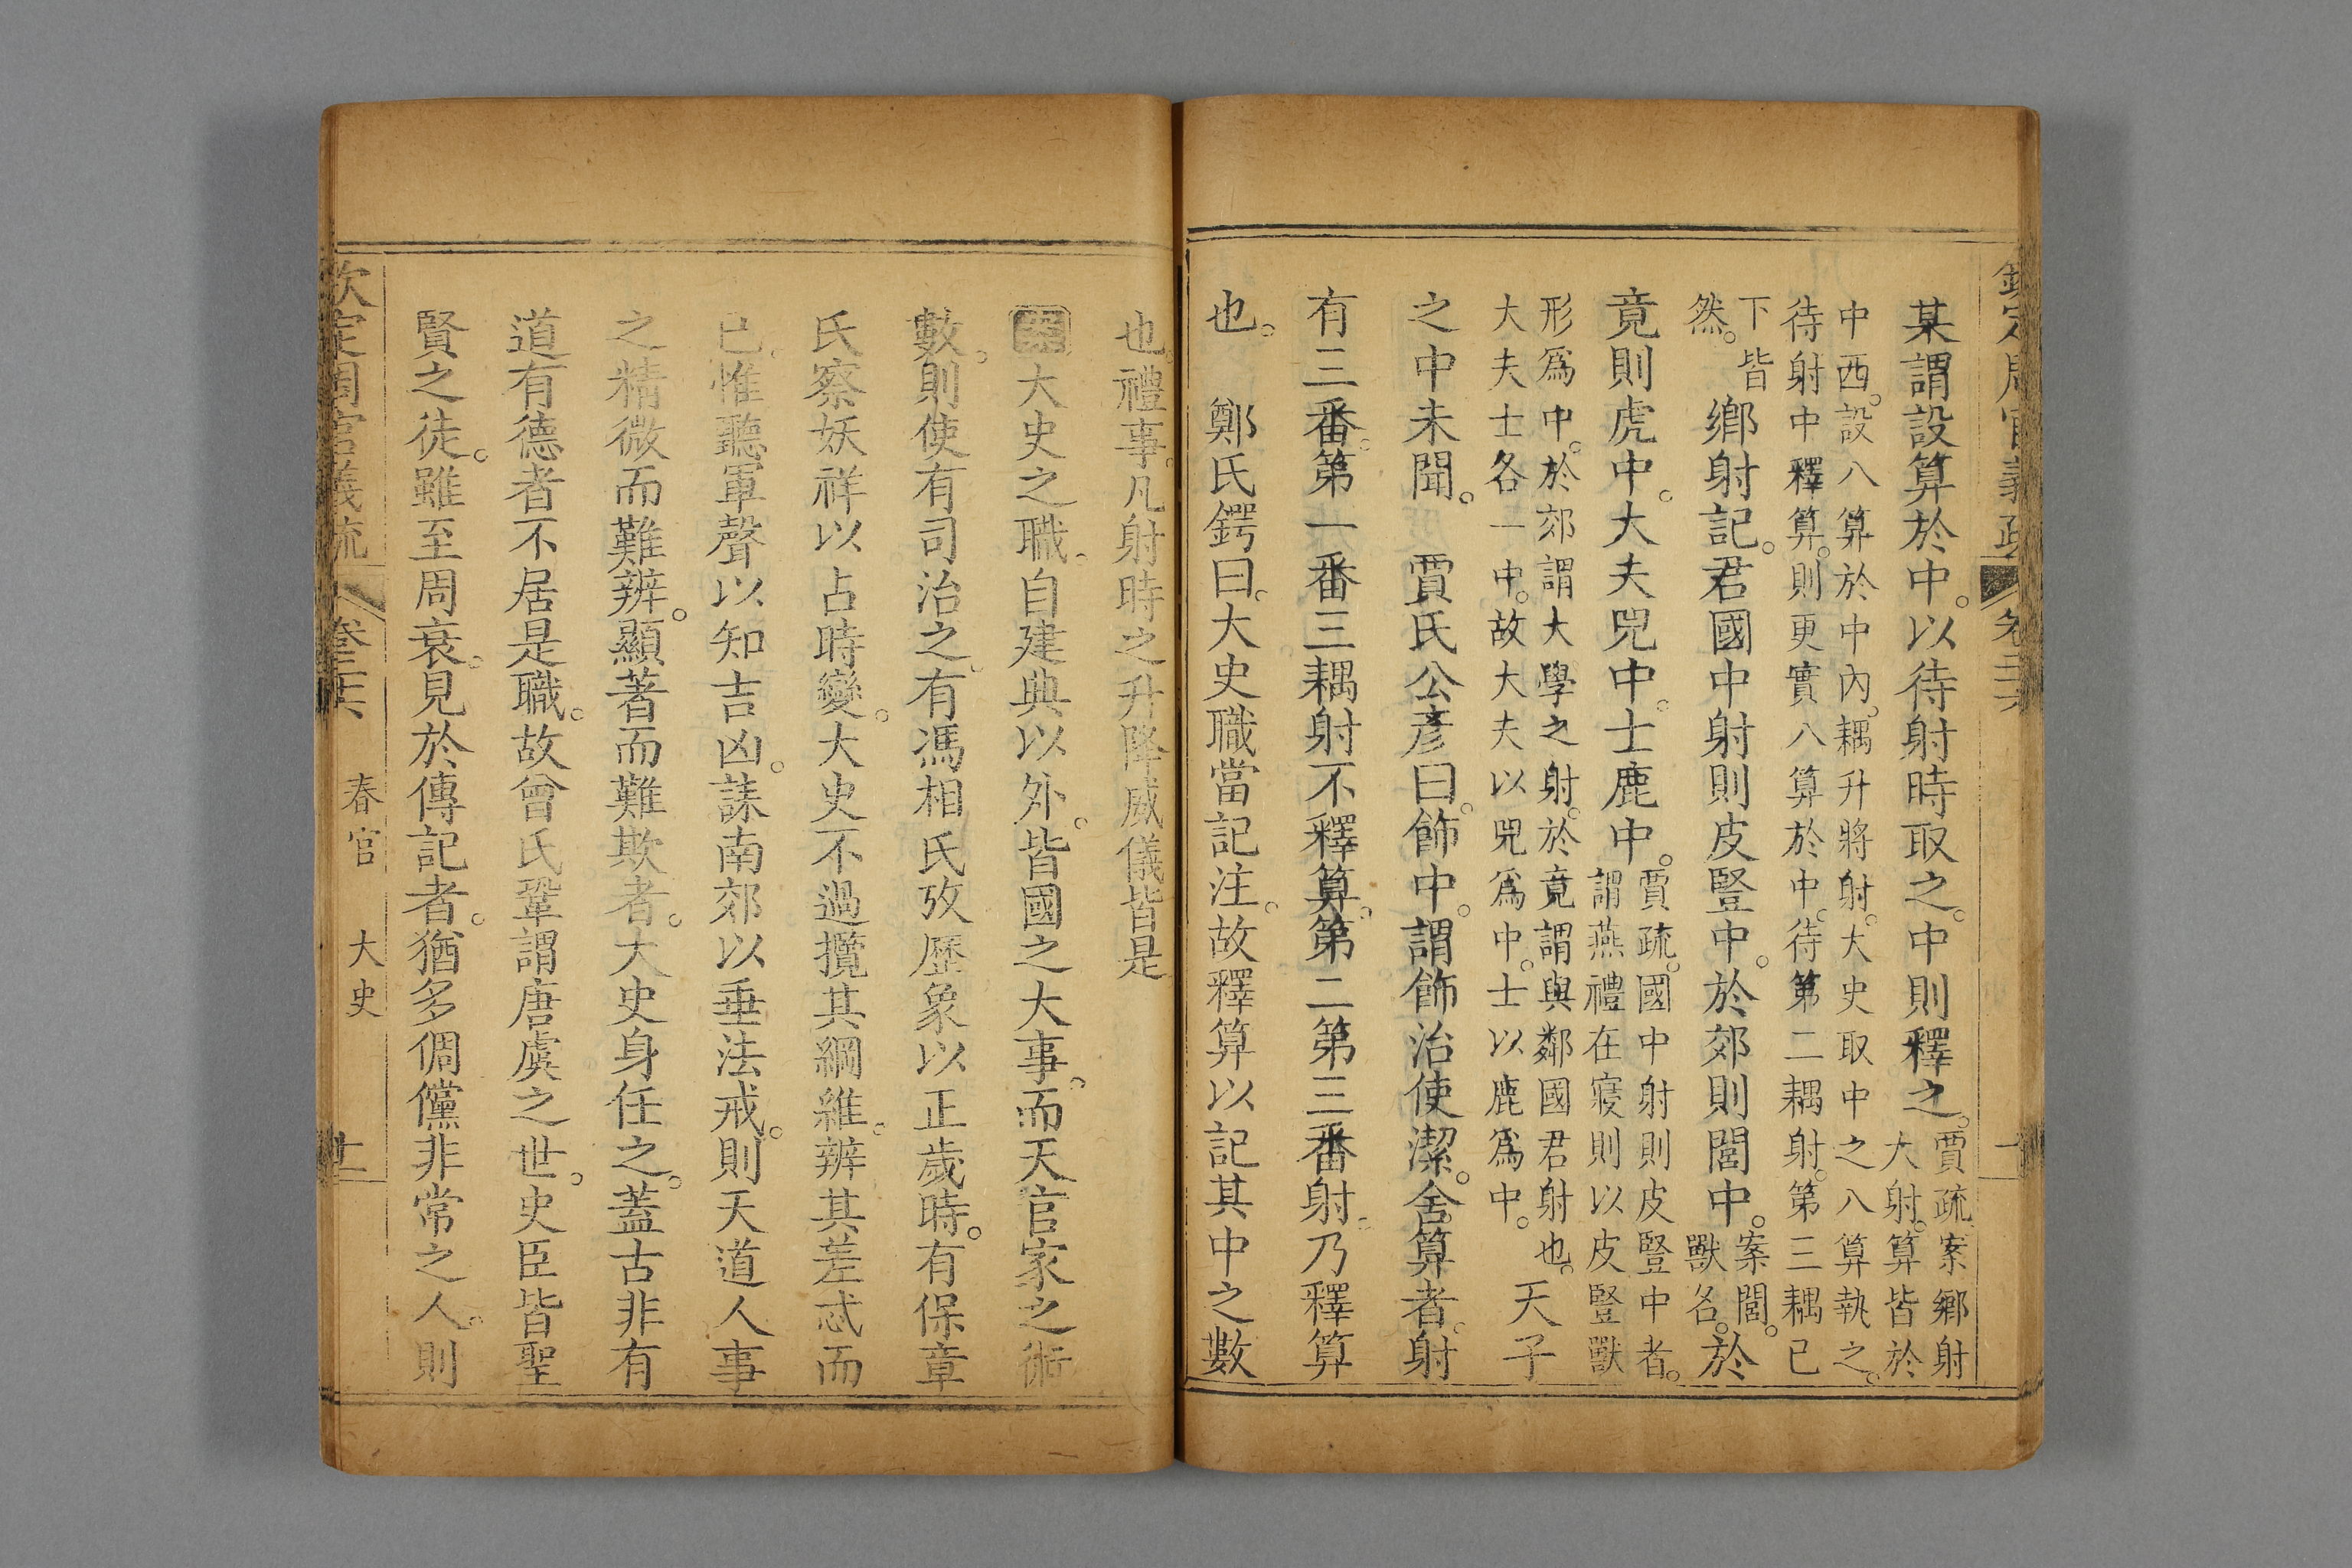 某謂設算於中。以待射時取之。中則釋之。賈疏案鄉射大射。算皆於
中西。設八算於中內。耦升將射。大史取中之八算執之。
待射中釋算。則更實八算於中。待第二耦射。第三耦已
下皆然。鄉射記。君國中射則皮豎中。於郊則閭中。案閭。獸名。於
竟則虎中。大夫兕中。士鹿中。賈疏。國中射則皮豎中者。謂燕禮在寢則以皮豎獸
形爲中。於郊謂大學之射。於竟謂與鄰國君射也。
大夫士各一中。故大夫以兕爲中。士以鹿爲中。天子
之中未聞。 賈氏公彥曰。飾中。謂飾治使潔。舍算者。射
有三番。第一番三耦射不釋算。第二第三番射。乃釋算
也。 鄭氏鍔曰。大史職當記注。故釋算以記其中之數
也。禮事。凡射時之升降威儀皆是
大史之職。自建典以外。皆國之大事。而天官家之術
數。則使有司治之。有馮相氏攷歷象以正歲時。有保章
氏察妖祥以占時變。大史不過攬其綱維。辨其差忒而
已。惟聽軍聲以知吉凶。誄南郊以垂法戒。則天道人事
之精微而難辨。顯著而難欺者。大史身任之。蓋古非有
道有德者不居是職。故曾氏鞏謂唐虞之世。史臣皆聖
賢之徒。雖至周衰。見於傳記者。猶多倜儻非常之人。則
欽定周官義疏 卷二十六 春官 大史 十一